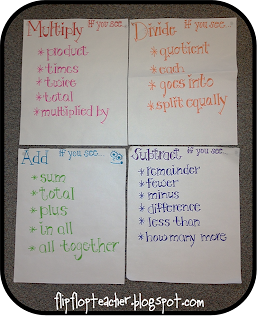 Multiply if you see...
*product
*times
*twice
*total
*multiplied by
Divide if you see...
*quotient
*each
*goes into
*split equally
Add if you see...
*sum
*total
*plus
*in all
*all together
Subtract if you see...
*remainder
*fewer
*minus
*difference
*less than
*how many more
flipflopteacher.blogspot.com